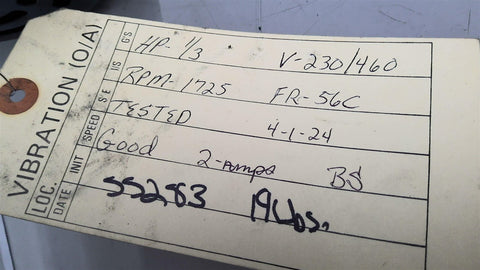 VIBRATION (O/A)
LOC. S E I/S G'S
DATE INIT SPEED
HP- 1/3 V-230/460
RPM-1725 FR-56C
TESTED 4-1-24
Good 2-Amps BS
55283 19Lbs.